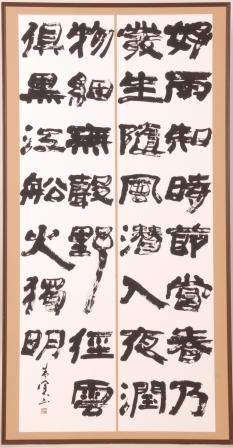 好雨知時節當春乃
發生隨風潛入夜潤
物細無聲野徑雲
俱黑江船火獨明